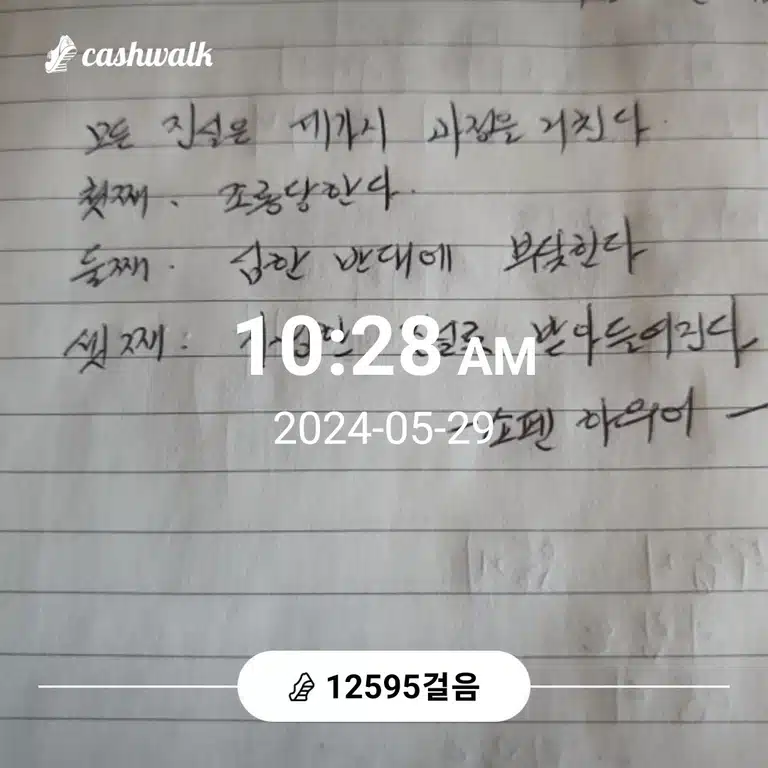 cashwalk
모든 진실은 세가지 과정을 거친다.
첫째. 조롱당한다.
둘째. 심한 반대에 부딪힌다
셋째: 받아들여진다.
10:28 AM
2024-05-29
-쇼펜하우어-
12595걸음